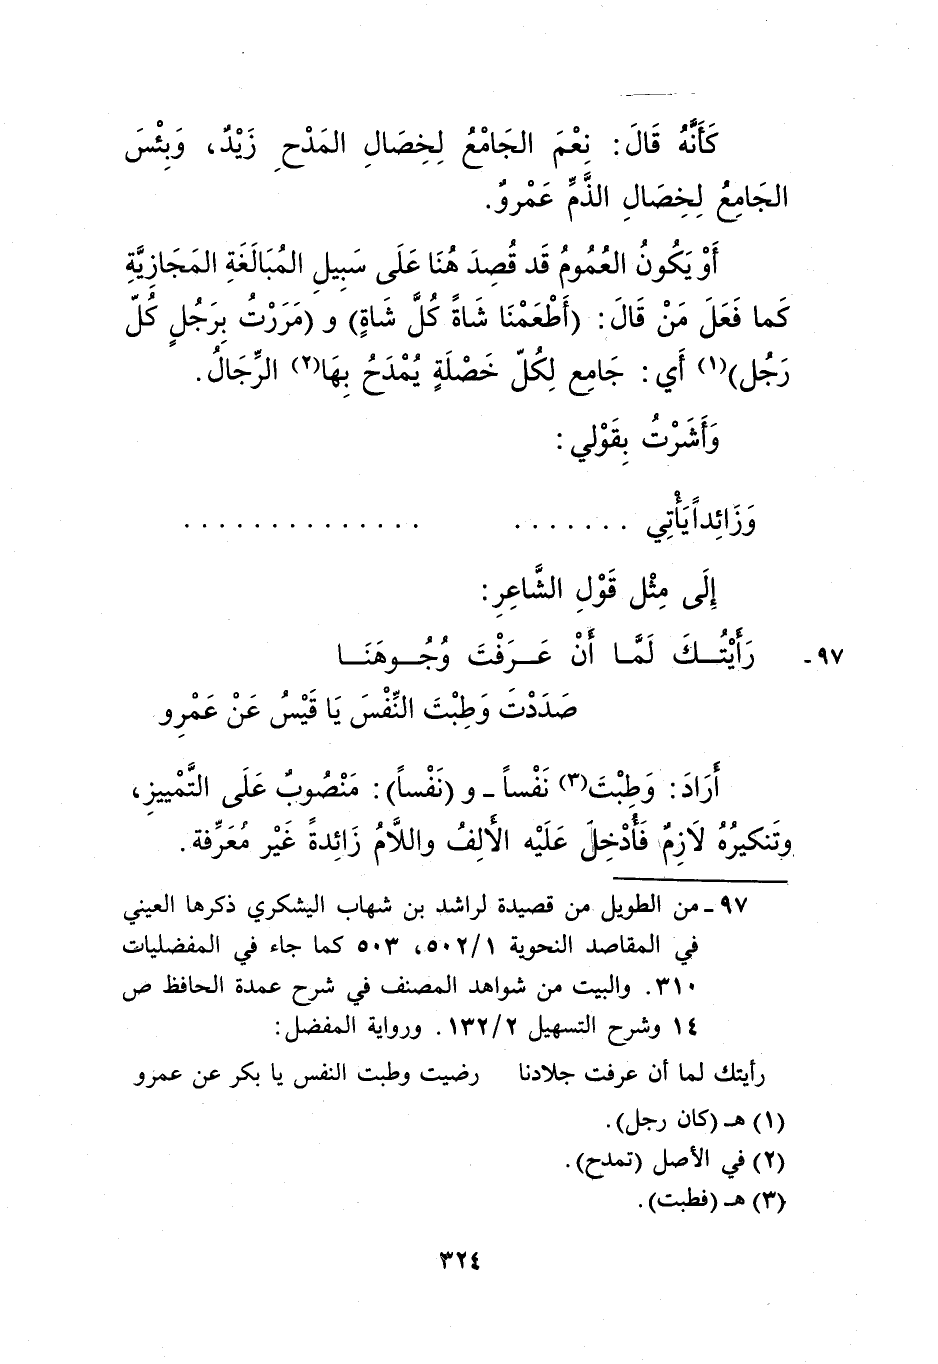 كَأَنَّهُ قَالَ: نِعْمَ الجَامْعُ لِخِصَالِ المَدْحِ زَيْدٌ، وَبِئْسَ
الجَامِعُ لِخِصَالِ الذَّمِّ عَمْروٌ.
أَوْ يَكُونُ العُمُومُ قَد قُصِدَ هُنَا عَلَى سَبِيلِ المُبَالَغَةِ المَجَازِيَّةِ
كَما فَعَلَ مَنْ قَالَ: (أَطْعَمْنَا شَاةً كُلَّ شَاةٍ) و (مَرَرْتُ بِرَجُلٍ كُلّ
رَجُل)(١) أَي: جَامِع لِكُلّ خَصْلَةٍ يُمْدَحُ بِهَا(٢) الرِّجَالُ.
وَأَشَرْتُ بِقَوْلي:
وَزَائِداً يَأْتِي ....... ..............
إِلَى مِثْل قَوْلِ الشَّاعِرِ:
٩٧ - رَأَيْتُــكَ لَمَّـا أَنْ عَــرَفْتَ وُجُــوهَنَــا
صَدَدْتَ وَطِبْتَ النَّفْسَ يَا قَيْسُ عَنْ عَمْرِو
أَرَادَ: وَطِبْتَ(٣) نَفْساً ـ و (نَفْساً): مَنْصُوبٌ عَلَى التَّمْييزِ،
وتَنكيرُهُ لَازِمٌ فَأُدْخِلَ عَلَيْه الأَلِفُ واللَّامُ زَائِدةً غَيْر مُعَرِّفة.
٩٧ ـ من الطويل من قصيدة لراشد بن شهاب اليشكري ذكرها العيني
في المقاصد النحوية ٥٠٢/١، ٥٠٣ كما جاء في المفضليات
٣١٠. والبيت من شواهد المصنف في شرح عمدة الحافظ ص
١٤ وشرح التسهيل ١٣٢/٢. ورواية المفضل:
رأيتك لما أن عرفت جلادنا رضيت وطبت النفس يا بكر عن عمرو
(١) هـ (كان رجل).
(٢) في الأصل (تمدح).
(٣) هـ (فطبت).
٣٢٤